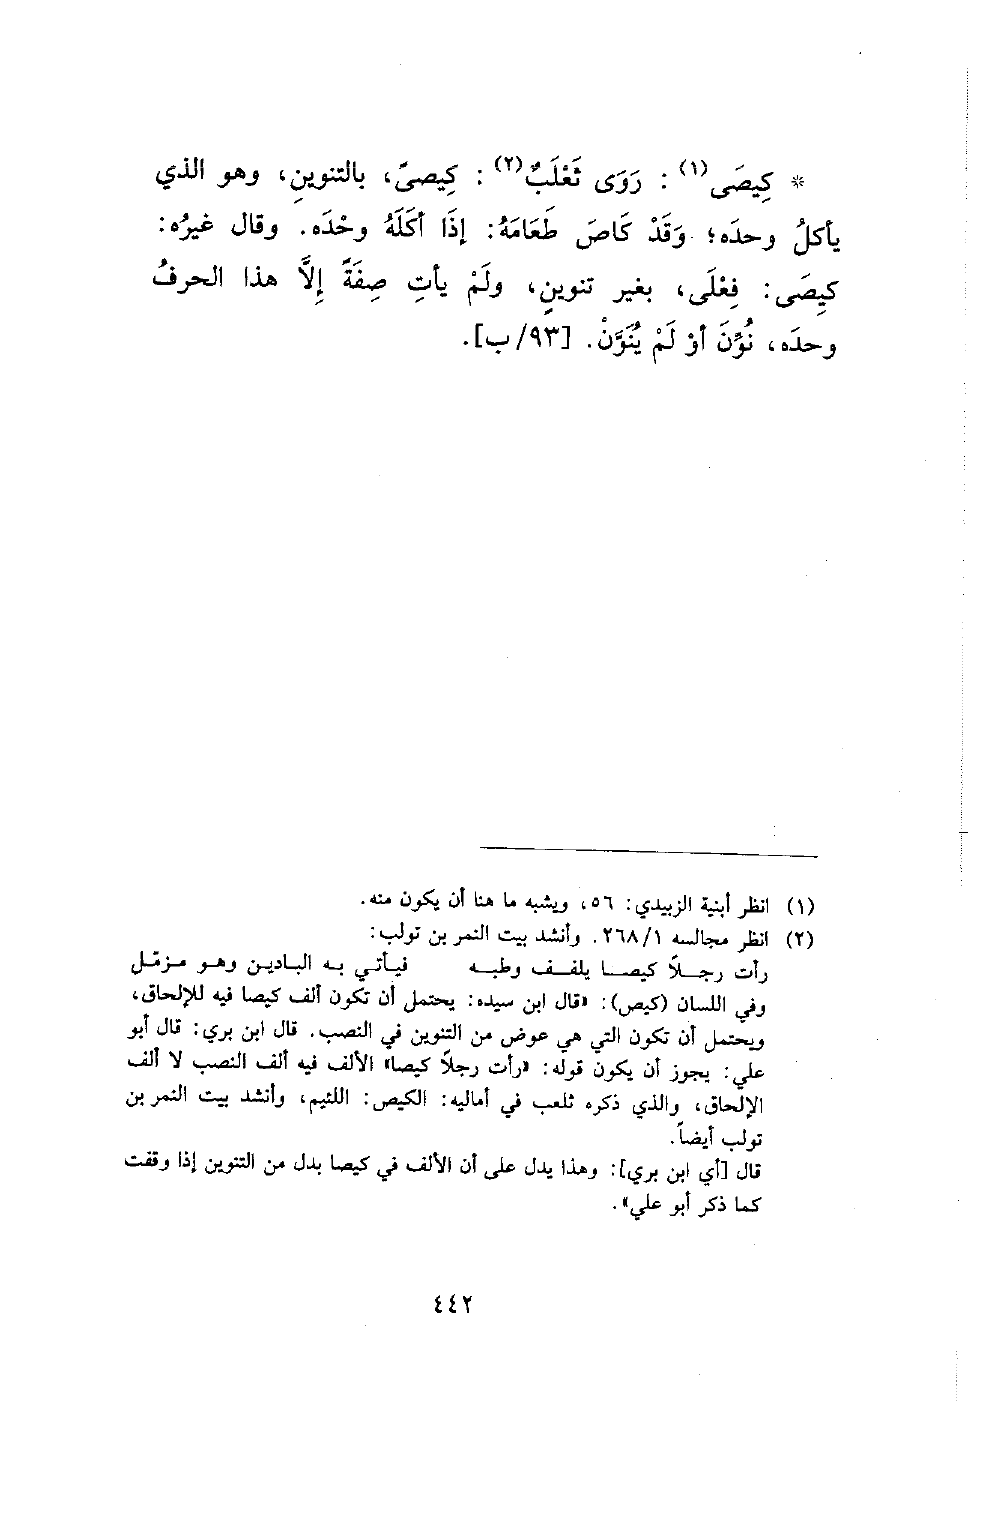 * كِيصَى(١) : رَوَى ثَعْلَبٌ(٢) : كِيصىً، بالتنوينِ، وهو الذي
يأكلُ وحدَه؛ وَقَدْ كَاصَ طَعَامَهُ: إذَا أكَلَهُ وحْدَه. وقال غيرُه:
كِيصَى: فِعْلَى، بغير تنوينٍ، ولَمْ يأتِ صِفَةً إلَّا هذا الحرفُ
وحدَه، نُوِّنَ أوْ لَمْ يُنَوَّنْ. [٩٣/ب].
(١) انظر أبنية الزبيدي: ٥٦، ويشبه ما هنا أن يكون منه.
(٢) انظر مجالسه ٢٦٨/١. وأنشد بيت النمر بن تولب:
رأت رجـلاً كيصـا يلفـف وطبـه فيـأتـي بـه البـادين وهـو مـزمّـل
وفي اللسان (كيص): «قال ابن سيده: يحتمل أن تكون ألف كيصا فيه للإلحاق،
ويحتمل أن تكون التي هي عوض من التنوين في النصب. قال ابن بري: قال أبو
علي: يجوز أن يكون قوله: «رأت رجلاً كيصا» الألف فيه ألف النصب لا ألف
الإلحاق، والذي ذكره ثلعب في أماليه: الكيص: اللئيم، وأنشد بيت النمر بن
تولب أيضاً.
قال [أي ابن بري]: وهذا يدل على أن الألف في كيصا بدل من التنوين إذا وقفت
كما ذكر أبو علي».
٤٤٢